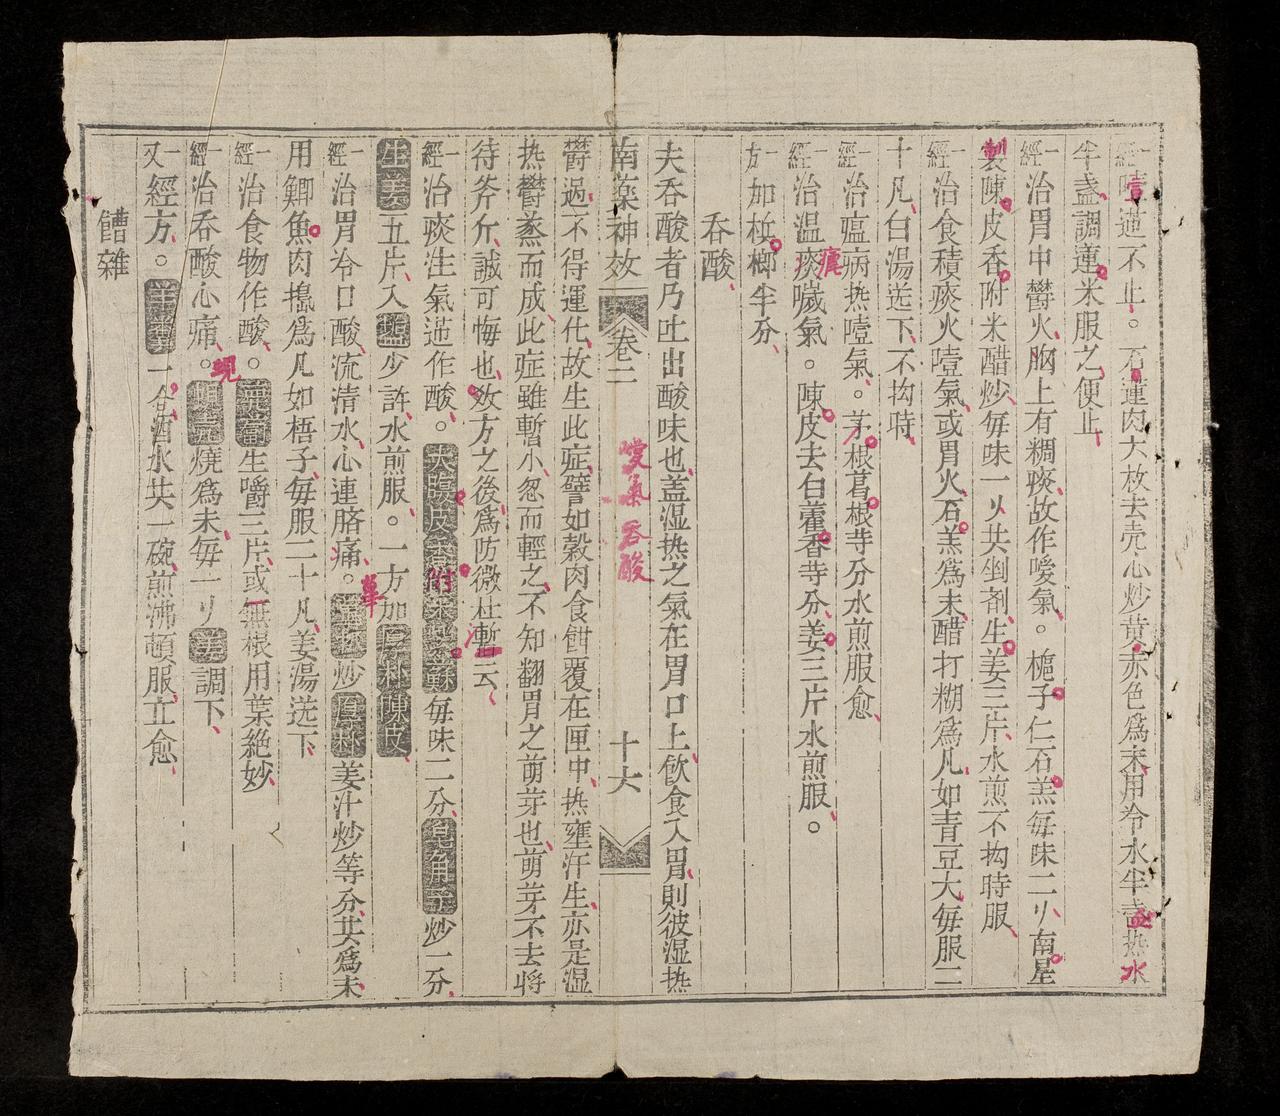 一經噎逆不止。石蓮肉六枚去壳心炒黄赤色為末用冷水半盞热水
半盞調蓮米服之便止
一經治胃中鬱火胸上有稠痰故作噯氣。梔子仁石羔每味二刂南星
製陳皮香附米醋炒每味一刂共剉剤生姜三片水煎不拘時服
一經治食積痰火噎氣或胃火石羔為末醋打糊為凡如青豆大每服二
十凡白湯送下不拘時
一經治瘟病热噎氣。茅根葛根等分水煎服愈
一經治温痰噦氣。陳皮去白藿香等分姜三片水煎服。
一方加梹榔半分
吞酸
夫吞酸者乃吐出酸味也盖湿热之氣在胃口上飲食入胃則彼湿热
南藥神效 卷二 十六
噯氣吞酸
鬱遏不得運化故生此症譬如穀肉食餌覆在匣中热壅汗生亦是湿
热鬱蒸而成此症雖暫小忽而輕之不知翻胃之萌芽也萌芽不去将
待斧斤誠可悔也效方之後為防微杜暫云
一經治痰注氣逆作酸。大腹皮香附米紫蘇每味二分皂角子炒一分
生姜五片入塩少許水煎服。一方加厚朴陳皮
一經治胃冷口酸流清水心連胳痛。蓽撥炒厚朴姜汁炒等分共為末
用鯽魚肉搗為凡如梧子每服二十凡姜湯送下
一經治食物作酸。蘿蔔生嚼三片或無根用葉絶妙
一經治吞酸心痛。蜆壳燒為末每一刂姜調下
一又經方。羊糞一合酒水共一碗煎沸頓服立愈
饋雜